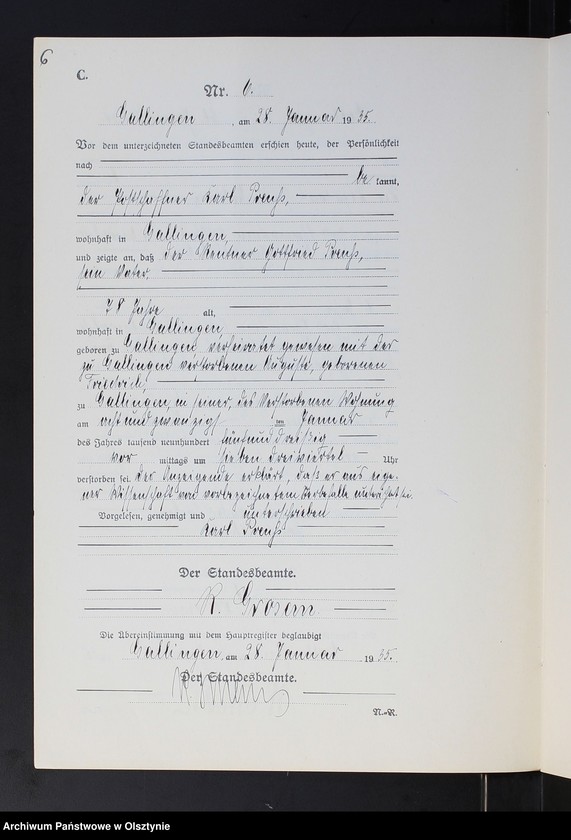 6
C.
Nr. 6.
Gallingen, am 28. Januar 1935.
Vor dem unterzeichneten Standesbeamten erschien heute, der Persönlichkeit
nach
be kannt,
der Postschaffner Karl Preuß,
wohnhaft in Gallingen,
und zeigte an, daß der Rentner Gottfried Preuß,
sein Vater,
78 Jahre alt,
wohnhaft in Gallingen,
geboren zu Gallingen, verheiratet gewesen mit der
zu Gallingen verstorbenen Auguste, geborenen
Friedrich,
zu Gallingen, in seiner, des Verstorbenen Wohnung
am acht und zwanzigsten Januar
des Jahres tausend neunhundert fünfunddreißig
vor mittags um sieben dreiviertel Uhr
verstorben sei. Der Anzeigende erklärt, daß er aus eige-
ner Wissenschaft von vorbezeichnetem Sterbefalle unterrichtet sei.
Vorgelesen, genehmigt und unterschrieben
Karl Preuß
Der Standesbeamte.
R.
Die Übereinstimmung mit dem Hauptregister beglaubigt
Gallingen, am 28. Januar 1935.
Der Standesbeamte.
N.-R.
Archiwum Państwowe w Olsztynie